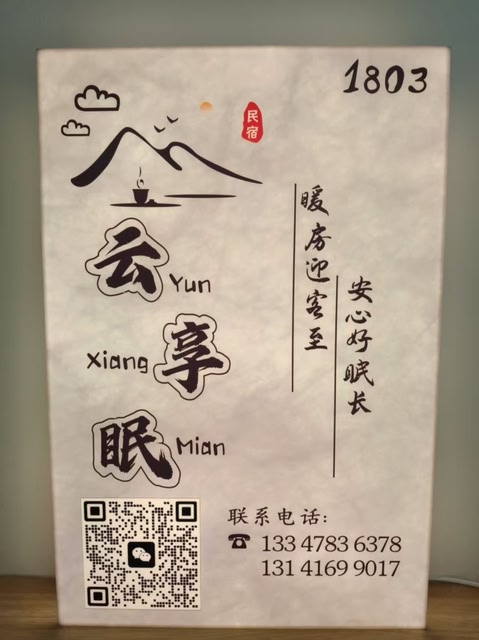 1803
民宿
云
Yun
Xiang
享
眠
Mian
暖房迎客至
安心好眠长
联系电话:
☎ 133 4783 6378
131 4169 9017